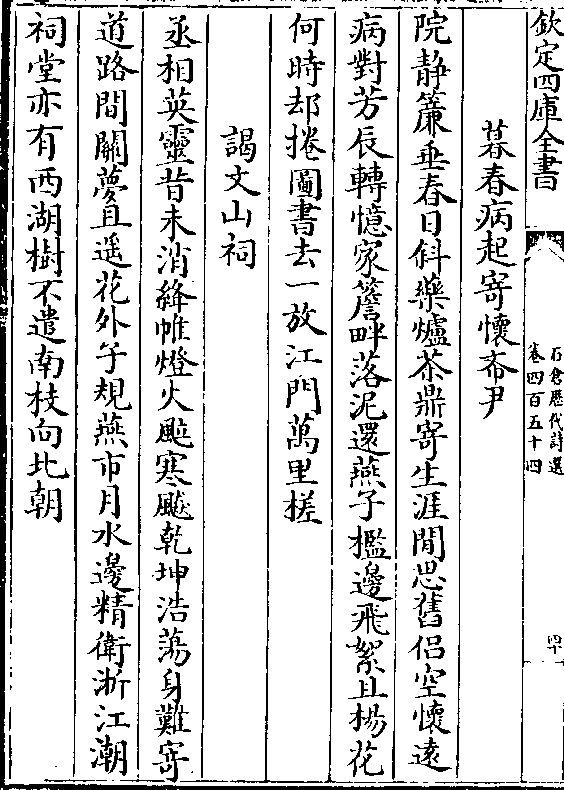 欽定四庫全書
石倉歷代詩選
卷四百五十四
四十
暮春病起寄懷希尹
院静簾垂春日斜藥爐茶鼎寄生涯閒思舊侣空懷逺
病對芳辰轉憶家簷畔落泥還燕子檻邊飛絮且楊花
何時却捲圖書去一放江門萬里槎
謁文山祠
丞相英靈昔未消絳帷燈火颭寒飈乾坤浩蕩身難寄
道路間關夢且遥花外子規燕市月水邊精衛浙江潮
祠堂亦有西湖樹不遣南枝向北朝